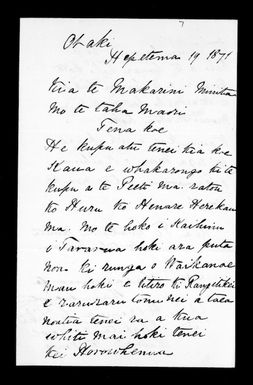 7
Otaki
Hepetema 19 1871
Kia te Makarini Minita
Mo te taha Maori
Tena koe
He kupu atu tenei kia koe
Kaua e whakarongo ki te
kupu a te Peeti ma ratou
ko Huru ko Henare Herekau
ma. Mo te hoko i Kaihinu
i Tararua hoki ara puta
noa ki runga o Waikanae
mau hoki e titiro ki Rangitikei
e raruraru
noatia tenei ra a kua
whiti mai hoki tenei
kei Horowhenua